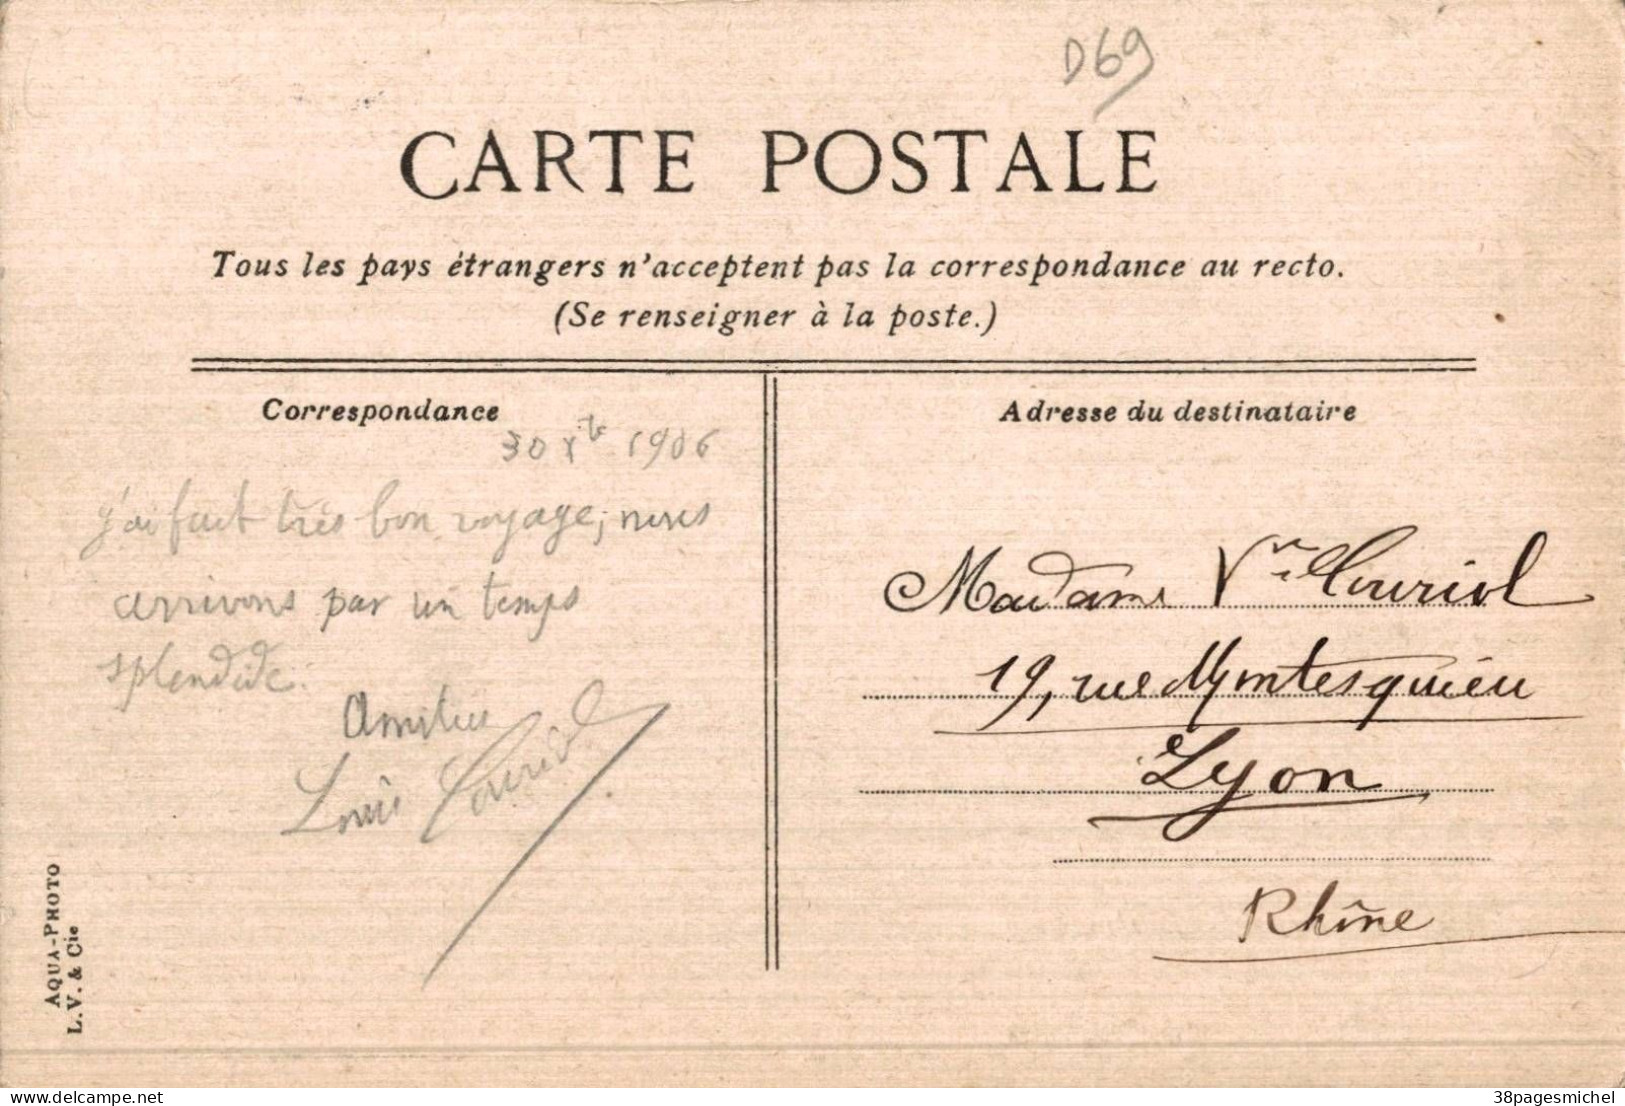 D69
CARTE POSTALE
Tous les pays étrangers n'acceptent pas la correspondance au recto.
(Se renseigner à la poste.)
Correspondance
30 Xbre 1906
j'ai fait très bon voyage, nous
arrivons par un temps
splendide.
Amitiés
Louis Couriol
Adresse du destinataire
Madame Vve Couriol
19, rue Montesquieu
Lyon
Rhône
AQUA-PHOTO
L. V. & Cie
delcampe.net
38pagesmichel